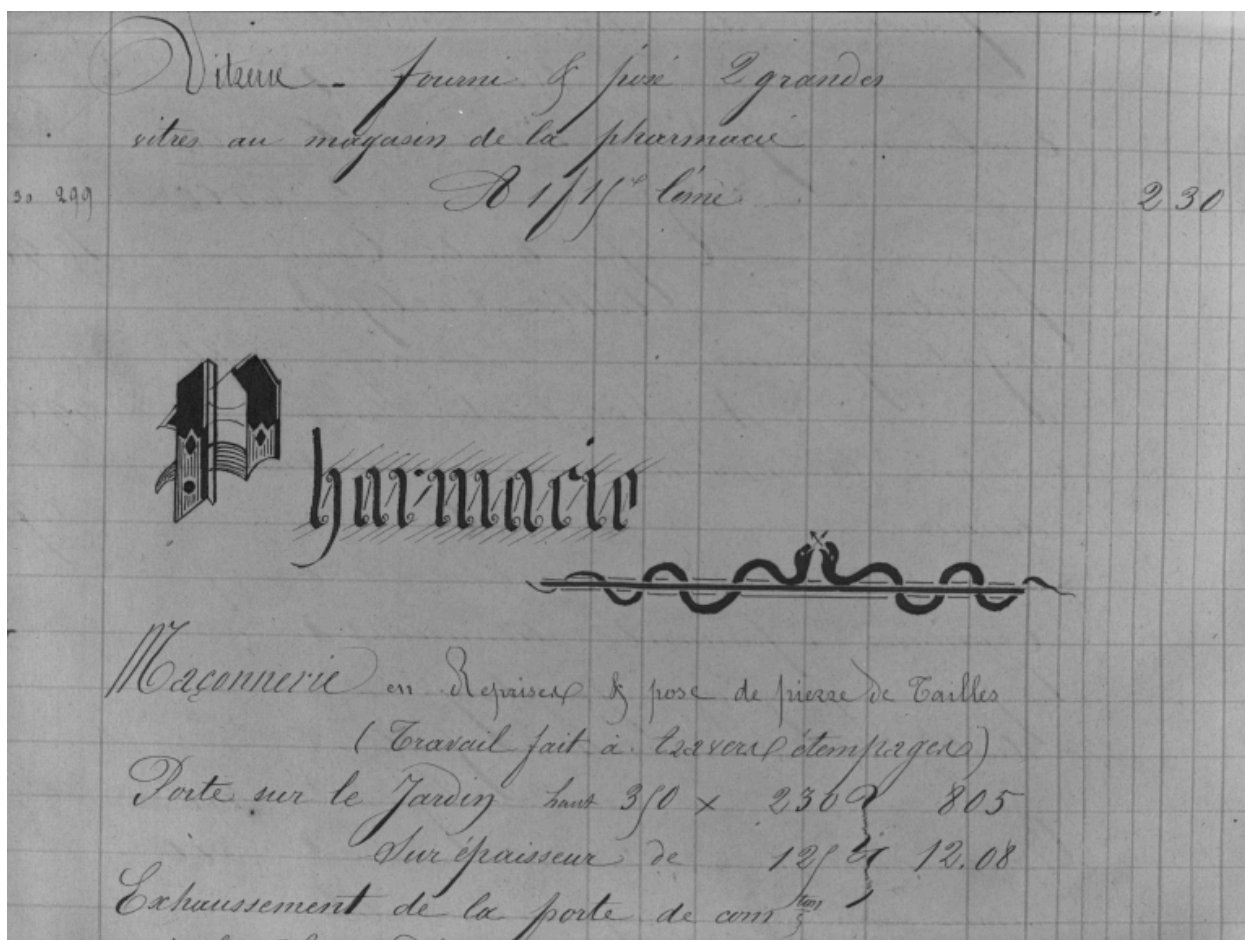 Vitrerie - fourni & posé 2 grandes
vitres au magasin de la pharmacie
50 299 A 1f15 l'une 230
Pharmacie
Maçonnerie en Reprises & pose de pierre de Tailles
(Travail fait à travers étempages)
Porte sur le Jardin haut 350 x 230 805
Sur épaisseur de 125 12.08
Exhaussement de la porte de com